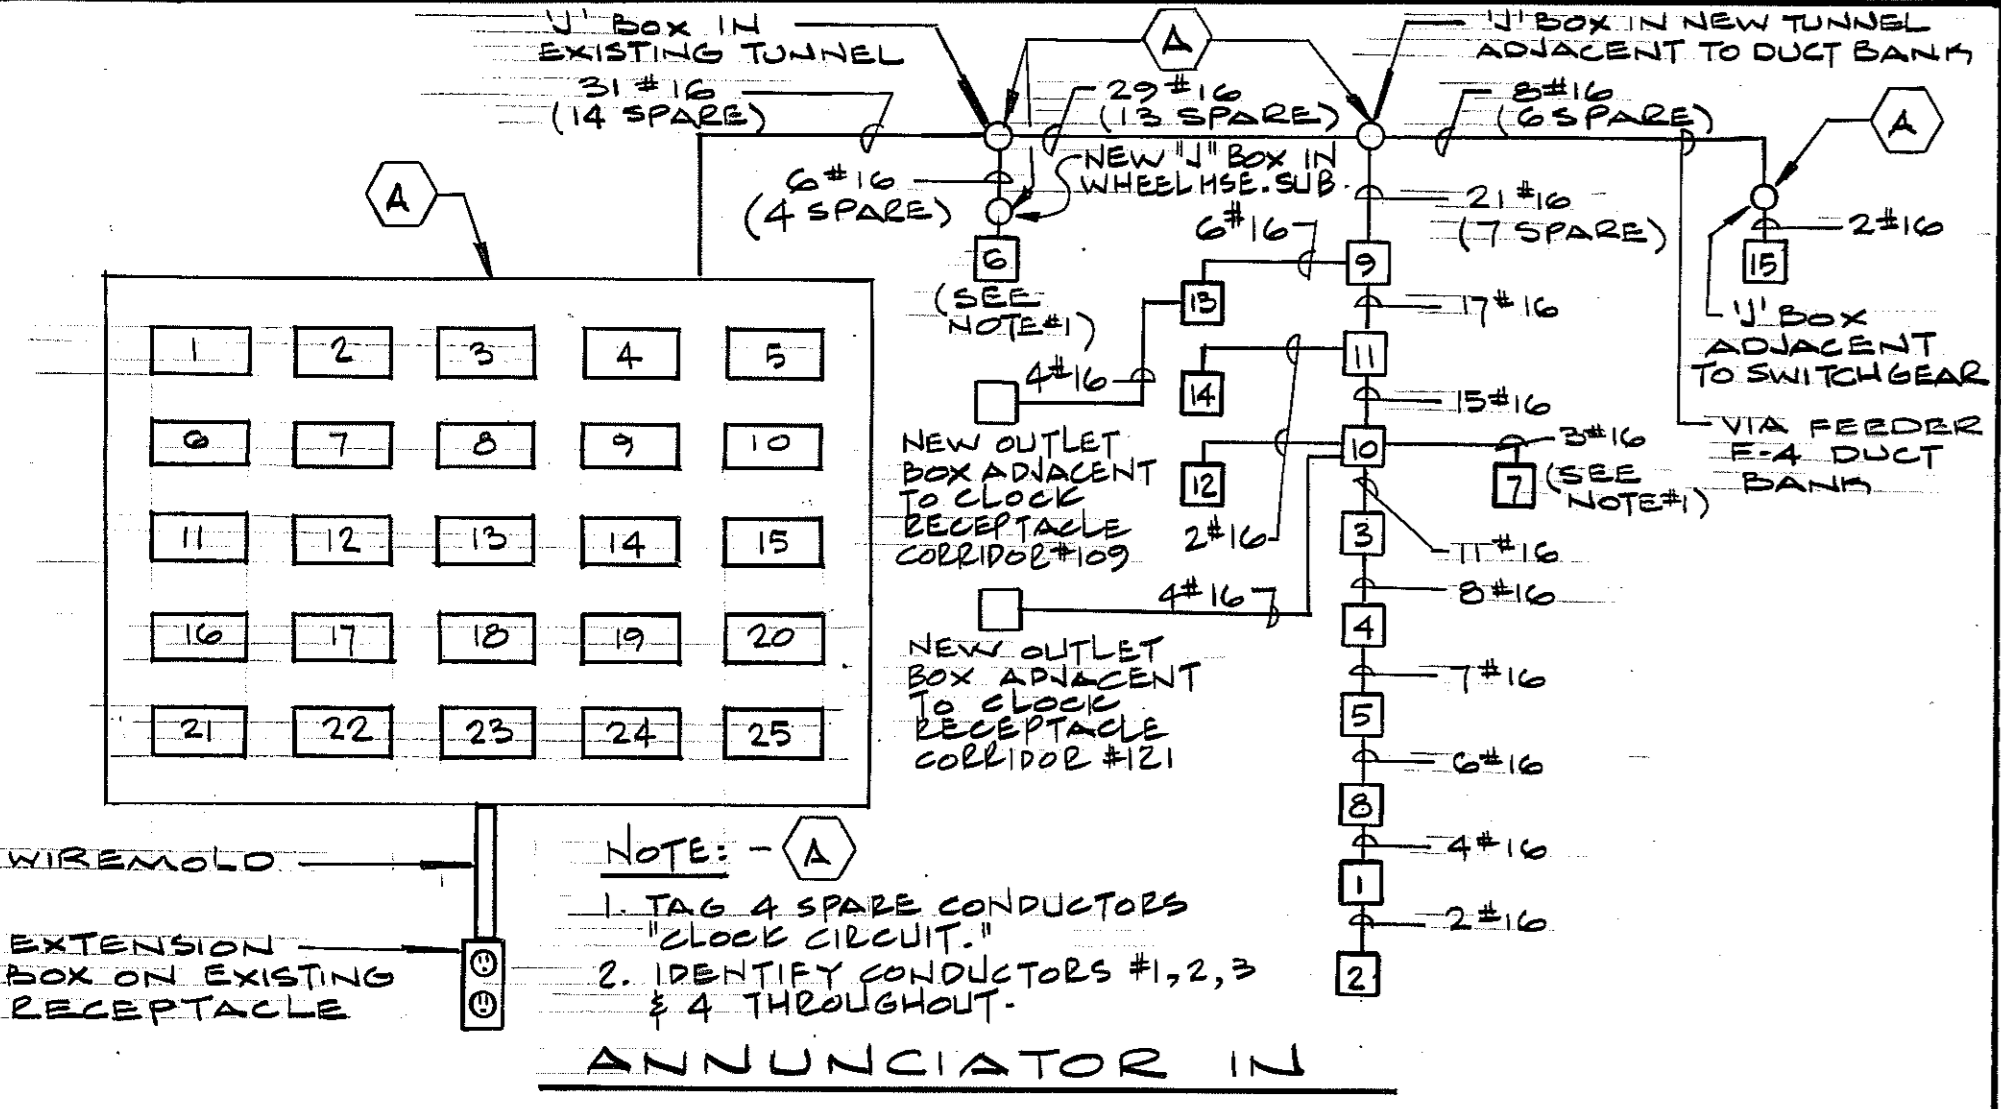 'J' BOX IN
EXISTING TUNNEL
31 #16
(14 SPARE)
A
29 #16
(13 SPARE)
'J' BOX IN NEW TUNNEL
ADJACENT TO DUCT BANK
8#16
(6 SPARE)
A
A
6 #16
(4 SPARE)
NEW "J" BOX IN
WHEEL HSE. SUB.
6 #16
21 #16
(7 SPARE)
2#16
6
(SEE
NOTE #1)
9
15
13
17 #16
'J' BOX
ADJACENT
TO SWITCHGEAR
11
14
4#16
15#16
VIA FEEDER
E-4 DUCT
BANK
NEW OUTLET
BOX ADJACENT
TO CLOCK
RECEPTACLE
CORRIDOR #109
10
12
3#16
7
(SEE
NOTE#1)
2#16
3
11 #16
4 #16
8 #16
NEW OUTLET
BOX ADJACENT
TO CLOCK
RECEPTACLE
CORRIDOR #121
4
7 #16
5
6#16
8
4 #16
1
2 #16
2
1 2 3 4 5
6 7 8 9 10
11 12 13 14 15
16 17 18 19 20
21 22 23 24 25
WIREMOLD
EXTENSION
BOX ON EXISTING
RECEPTACLE
NOTE: - A
1. TAG 4 SPARE CONDUCTORS
"CLOCK CIRCUIT."
2. IDENTIFY CONDUCTORS #1, 2, 3
& 4 THROUGHOUT.
ANNUNCIATOR IN